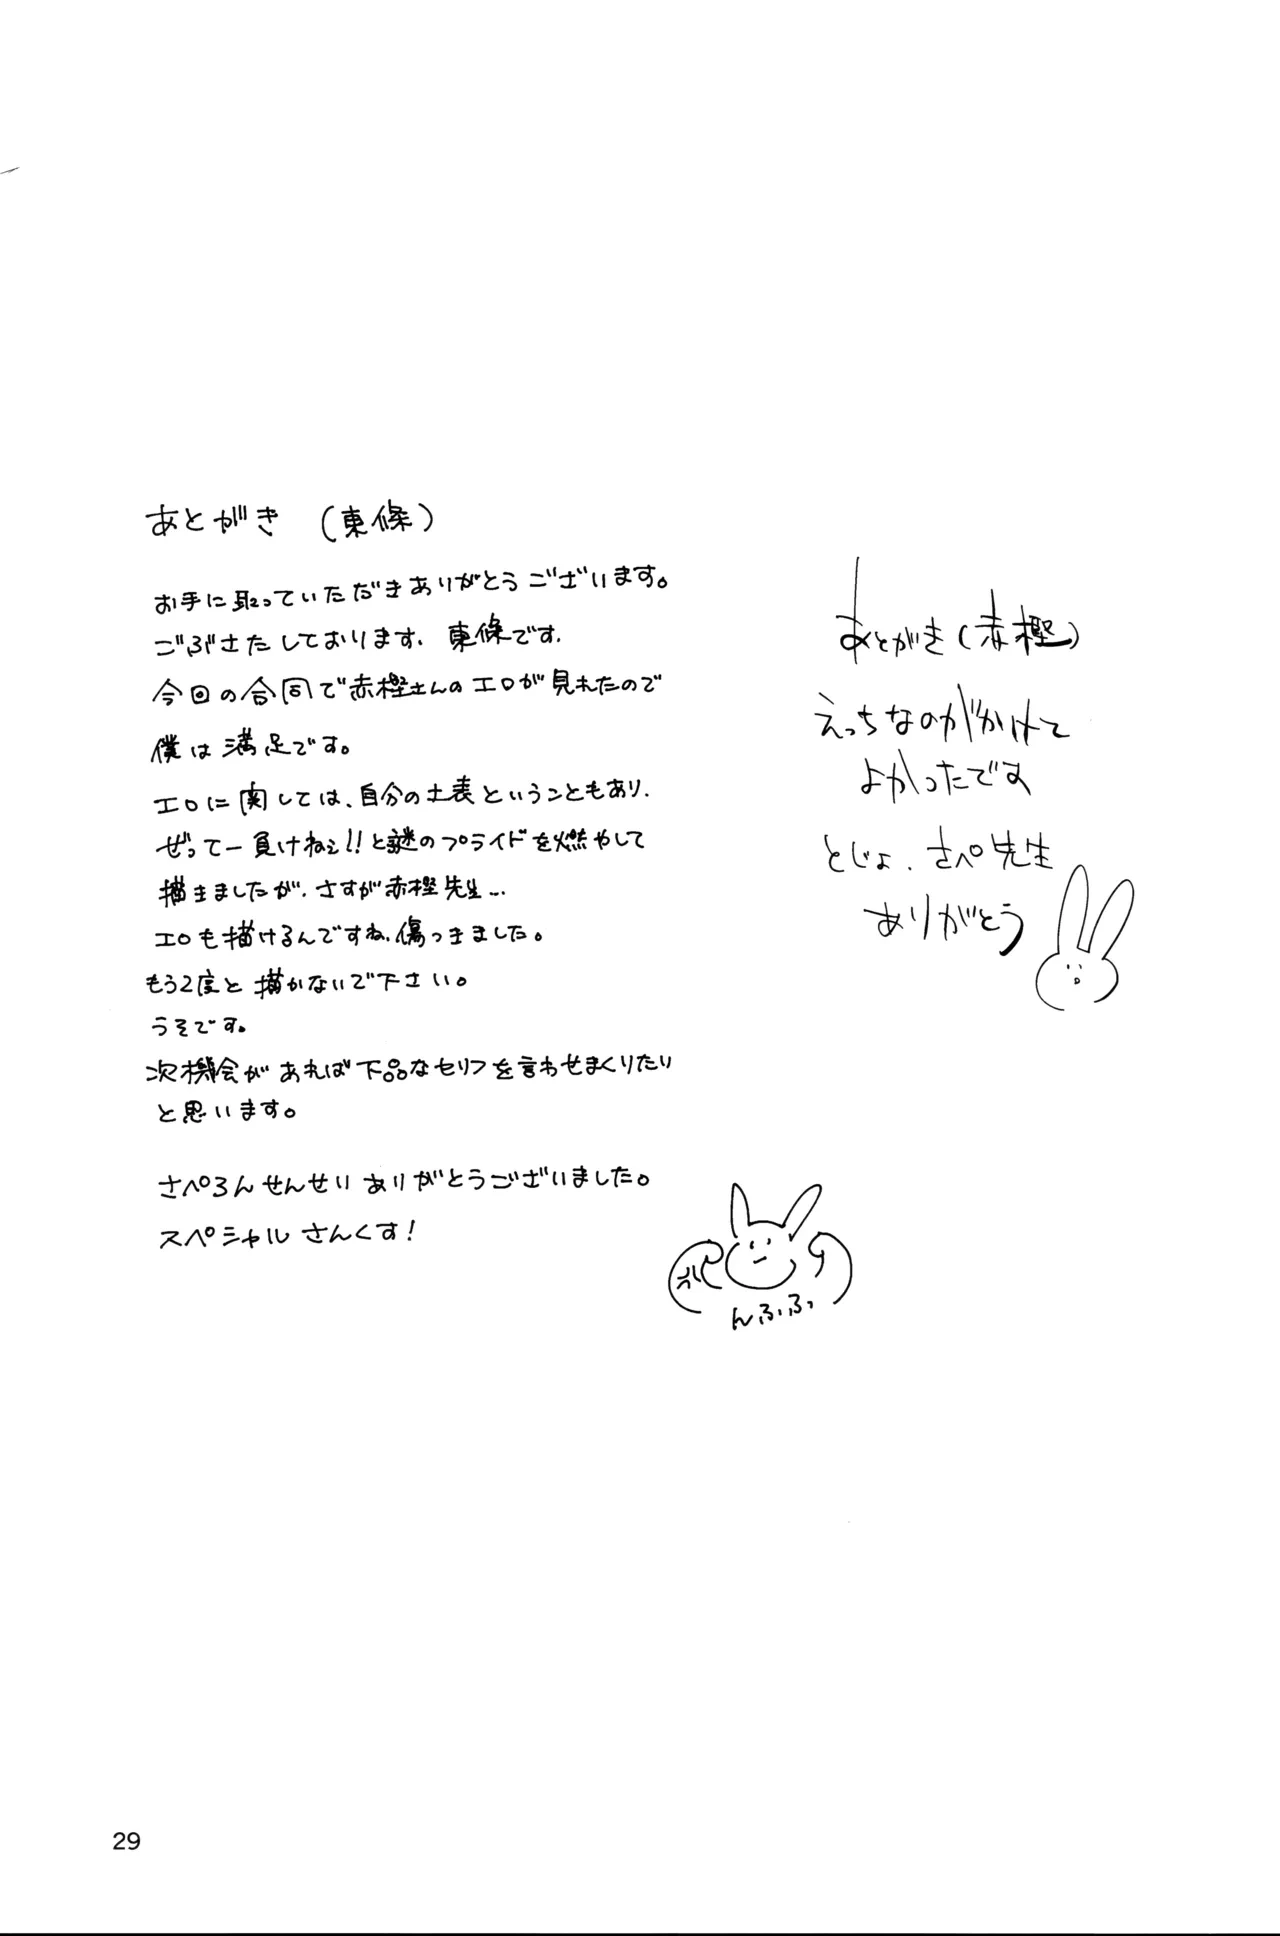 あとがき (赤樫)
えっちなのがかけて
よかったです
とじょ、さぺ先生
ありがとう
あとがき (東條)
お手に取っていただきありがとうございます。
ごぶさたしております、東條です.
今回の合同で赤樫さんのエロが見れたので
僕は満足です。
エロに関しては、自分の土表ということもあり、
ぜってー負けねェ!!と謎のプライドを燃やして
描きましたが、さすが赤樫先生…
エロも描けるんですね、傷つきました。
もう2度と描かないで下さい。
うそです。
次機会があれば下品なセリフを言わせまくりたい
と思います。
さぺろんせんせい ありがとうございました。
スペシャル さんくす!
んふふっ
29